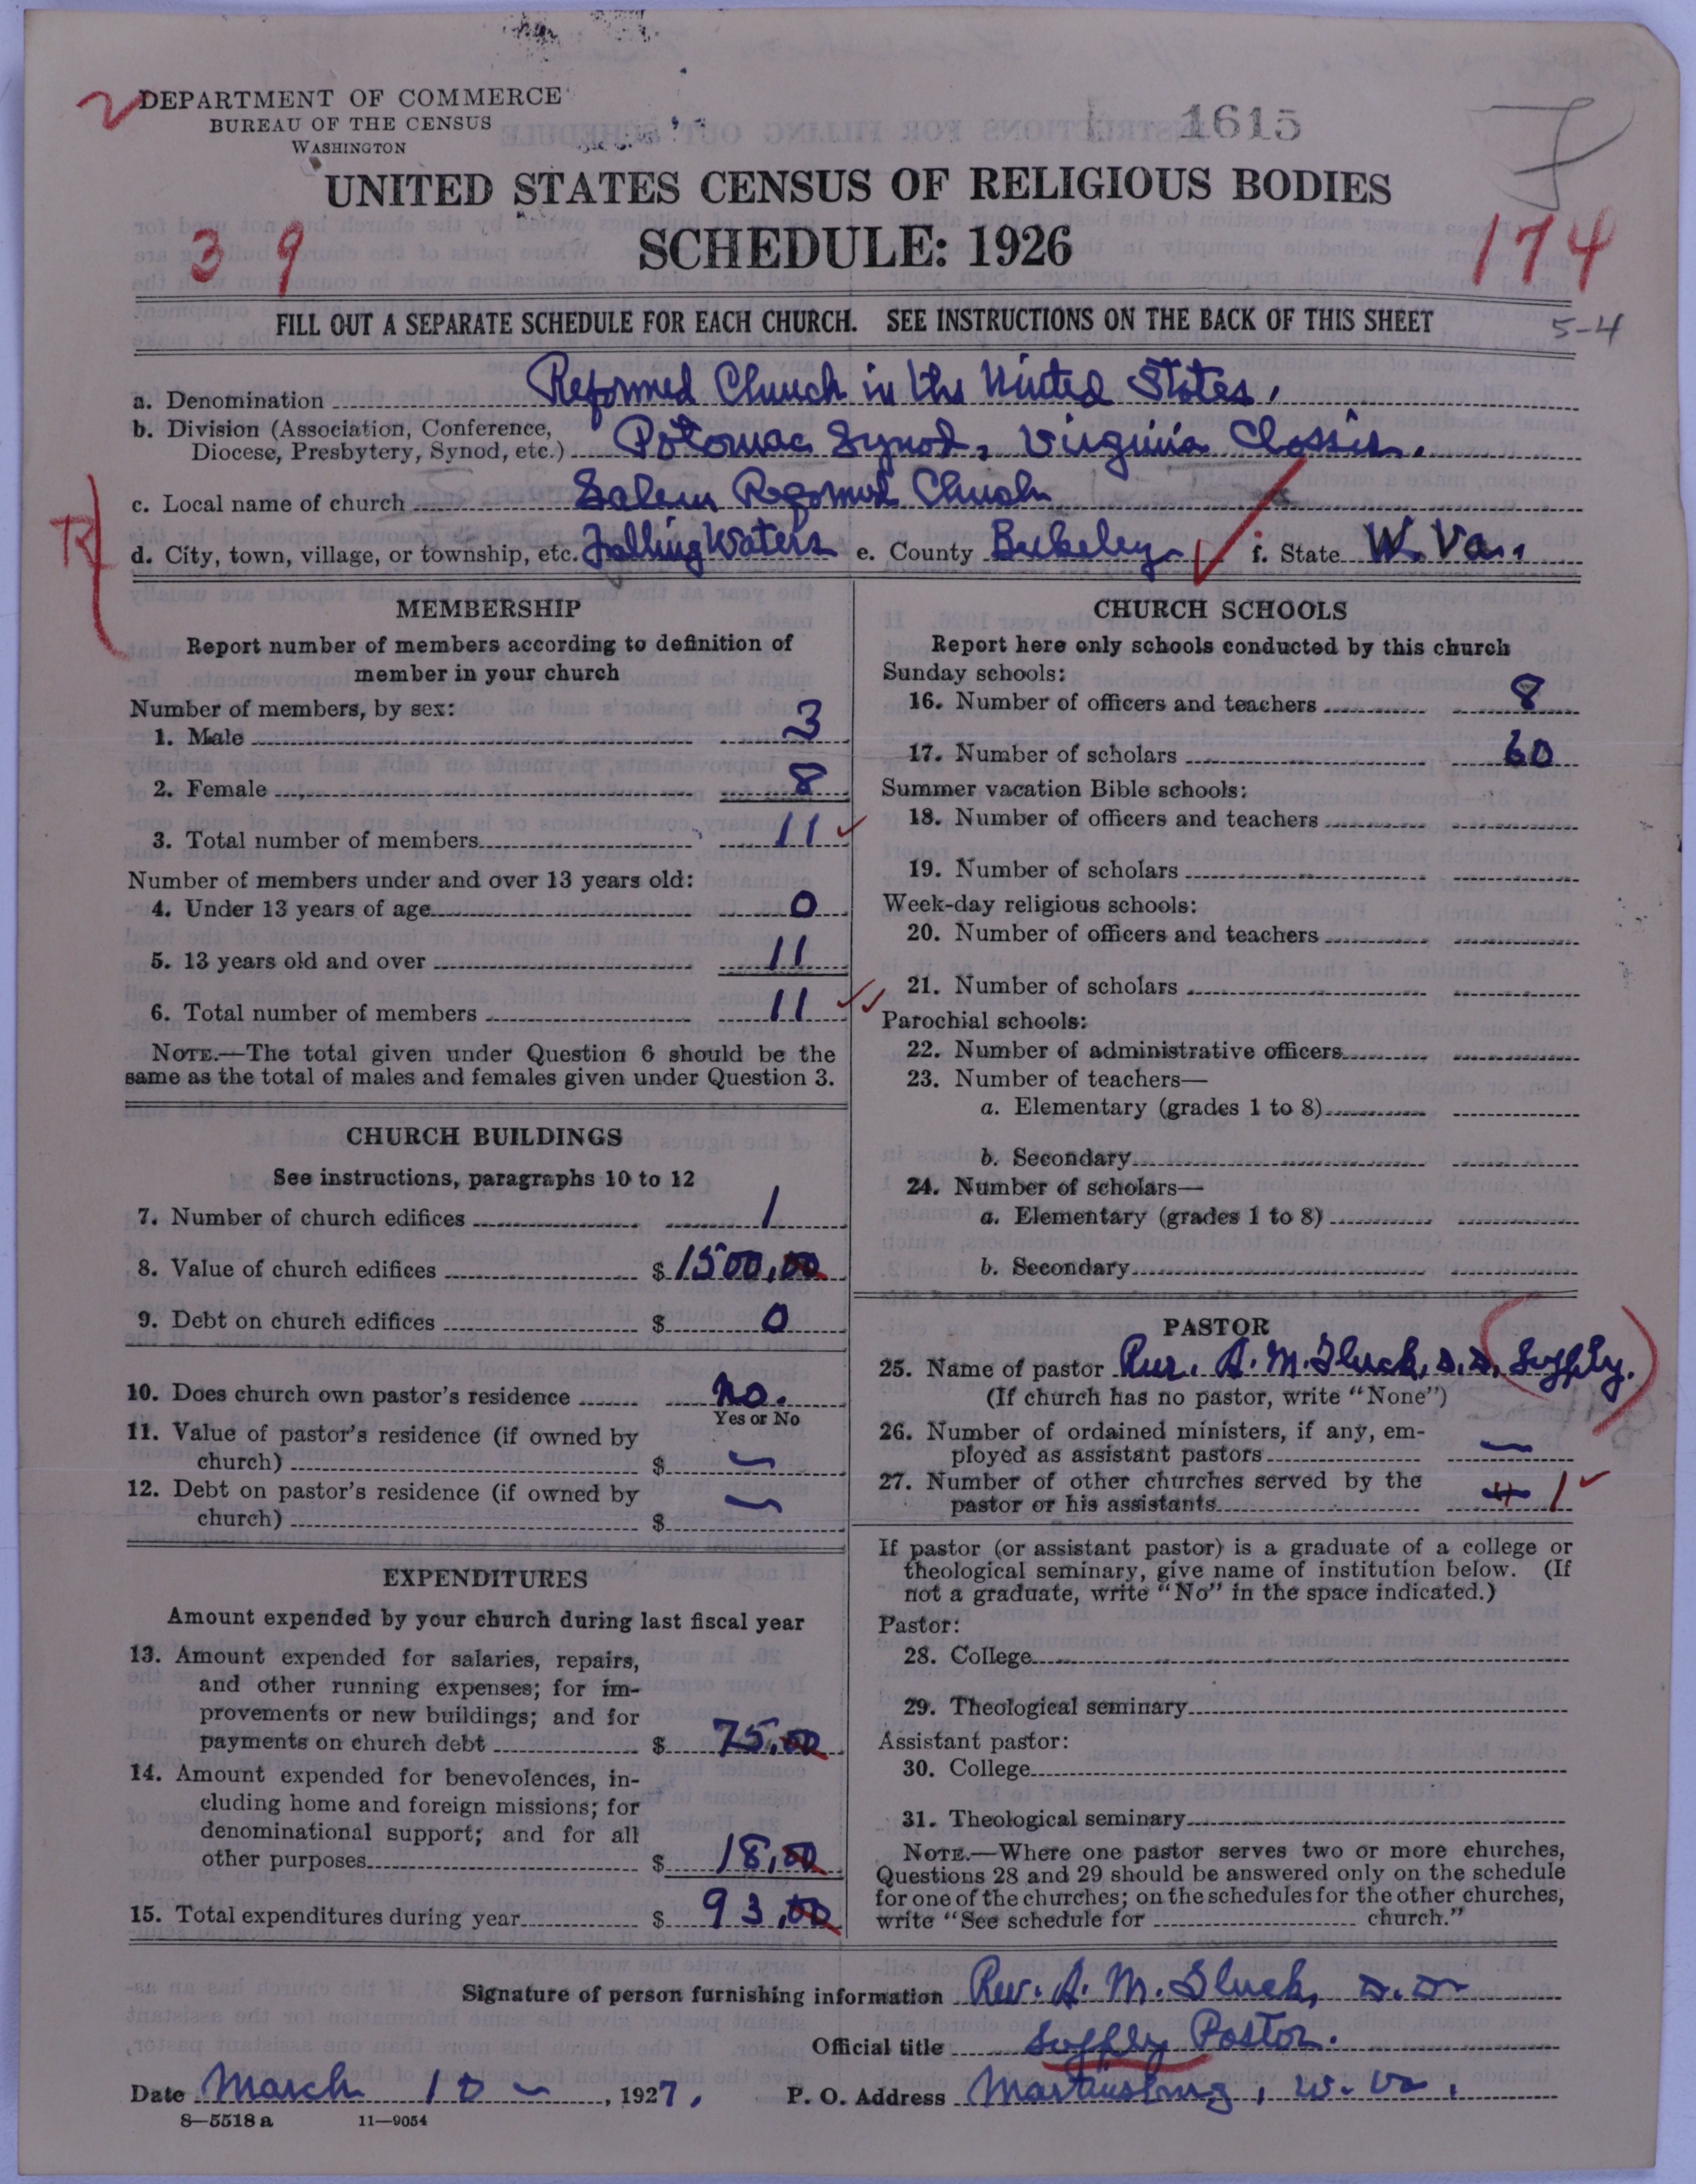 DEPARTMENT OF COMMERCE
BUREAU OF THE CENSUS
WASHINGTON
1615
UNITED STATES CENSUS OF RELIGIOUS BODIES
SCHEDULE: 1926
39
174
FILL OUT A SEPARATE SCHEDULE FOR EACH CHURCH. SEE INSTRUCTIONS ON THE BACK OF THIS SHEET
5-4
a. Denomination Reformed Church in the United States,
b. Division (Association, Conference, Diocese, Presbytery, Synod, etc.) Potomac Synod, Virginia Classis.
c. Local name of church Salem Reformed Church
R
d. City, town, village, or township, etc. Falling Waters e. County Berkeley f. State W. Va.,
MEMBERSHIP
Report number of members according to definition of
member in your church
Number of members, by sex:
1. Male 3
2. Female 8
3. Total number of members 11
Number of members under and over 13 years old:
4. Under 13 years of age 0
5. 13 years old and over 11
6. Total number of members 11
NOTE.—The total given under Question 6 should be the
same as the total of males and females given under Question 3.
CHURCH BUILDINGS
See instructions, paragraphs 10 to 12
7. Number of church edifices 1
8. Value of church edifices $ 1500.00
9. Debt on church edifices $ 0
10. Does church own pastor's residence No.
Yes or No
11. Value of pastor's residence (if owned by
church) $ —
12. Debt on pastor's residence (if owned by
church) $ —
EXPENDITURES
Amount expended by your church during last fiscal year
13. Amount expended for salaries, repairs,
and other running expenses; for im-
provements or new buildings; and for
payments on church debt $ 75.00
14. Amount expended for benevolences, in-
cluding home and foreign missions; for
denominational support; and for all
other purposes $ 18.00
15. Total expenditures during year $ 93.00
CHURCH SCHOOLS
Report here only schools conducted by this church
Sunday schools:
16. Number of officers and teachers 8
17. Number of scholars 60
Summer vacation Bible schools:
18. Number of officers and teachers
19. Number of scholars
Week-day religious schools:
20. Number of officers and teachers
21. Number of scholars
Parochial schools:
22. Number of administrative officers
23. Number of teachers—
a. Elementary (grades 1 to 8)
b. Secondary
24. Number of scholars—
a. Elementary (grades 1 to 8)
b. Secondary
PASTOR
25. Name of pastor Rev. A. M. Gluck, D.D. Supply.
(If church has no pastor, write "None")
26. Number of ordained ministers, if any, em-
ployed as assistant pastors —
27. Number of other churches served by the
pastor or his assistants 4 1
If pastor (or assistant pastor) is a graduate of a college or
theological seminary, give name of institution below. (If
not a graduate, write "No" in the space indicated.)
Pastor:
28. College
29. Theological seminary
Assistant pastor:
30. College
31. Theological seminary
NOTE.—Where one pastor serves two or more churches,
Questions 28 and 29 should be answered only on the schedule
for one of the churches; on the schedules for the other churches,
write "See schedule for church."
Signature of person furnishing information Rev. A. M. Gluck, D.D.
Official title Supply Pastor.
Date March 10 —, 1927. P. O. Address Martinsburg, W. Va.
8—5518 a 11—9054